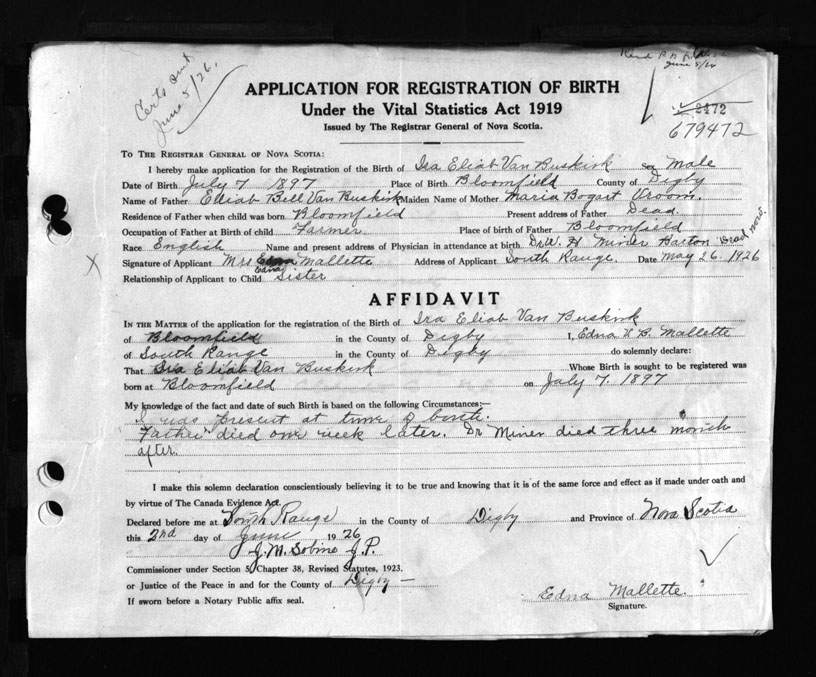 Certs sent
June 5/26.
June 5/26
APPLICATION FOR REGISTRATION OF BIRTH
Under the Vital Statistics Act 1919
Issued by The Registrar General of Nova Scotia.
2472
679472
TO THE REGISTRAR GENERAL OF NOVA SCOTIA:
I hereby make application for the Registration of the Birth of Ira Eliab Van Buskirk Sex Male
Date of Birth July 7 1897 Place of Birth Bloomfield County of Digby
Name of Father Eliab Bell Van Buskirk Maiden Name of Mother Maria Bogart Vroom.
Residence of Father when child was born Bloomfield Present address of Father Dead
Occupation of Father at Birth of child Farmer Place of birth of Father Bloomfield
Race English Name and present address of Physician in attendance at birth Dr W. H Miner Barton Dead now.
Signature of Applicant Mrs Edna Mallette Address of Applicant South Range. Date May 26. 1926
Relationship of Applicant to Child Sister
AFFIDAVIT
IN THE MATTER of the application for the registration of the Birth of Ira Eliab Van Buskirk
of Bloomfield in the County of Digby I, Edna V. B. Mallette
of South Range in the County of Digby do solemnly declare:
That Ira Eliab Van Buskirk Whose Birth is sought to be registered was
born at Bloomfield on July 7. 1897
My knowledge of the fact and date of such Birth is based on the following Circumstances:—
I was present at time of birth.
Father died one week later. Dr Miner died three month
after.
I make this solemn declaration conscientiously believing it to be true and knowing that it is of the same force and effect as if made under oath and
by virtue of The Canada Evidence Act.
Declared before me at South Range in the County of Digby and Province of Nova Scotia
this 2nd day of June 1926
J. M. Sabine J. P.
Commissioner under Section 5, Chapter 38, Revised Statutes, 1923.
or Justice of the Peace in and for the County of Digby —
If sworn before a Notary Public affix seal.
Edna Mallette.
Signature.